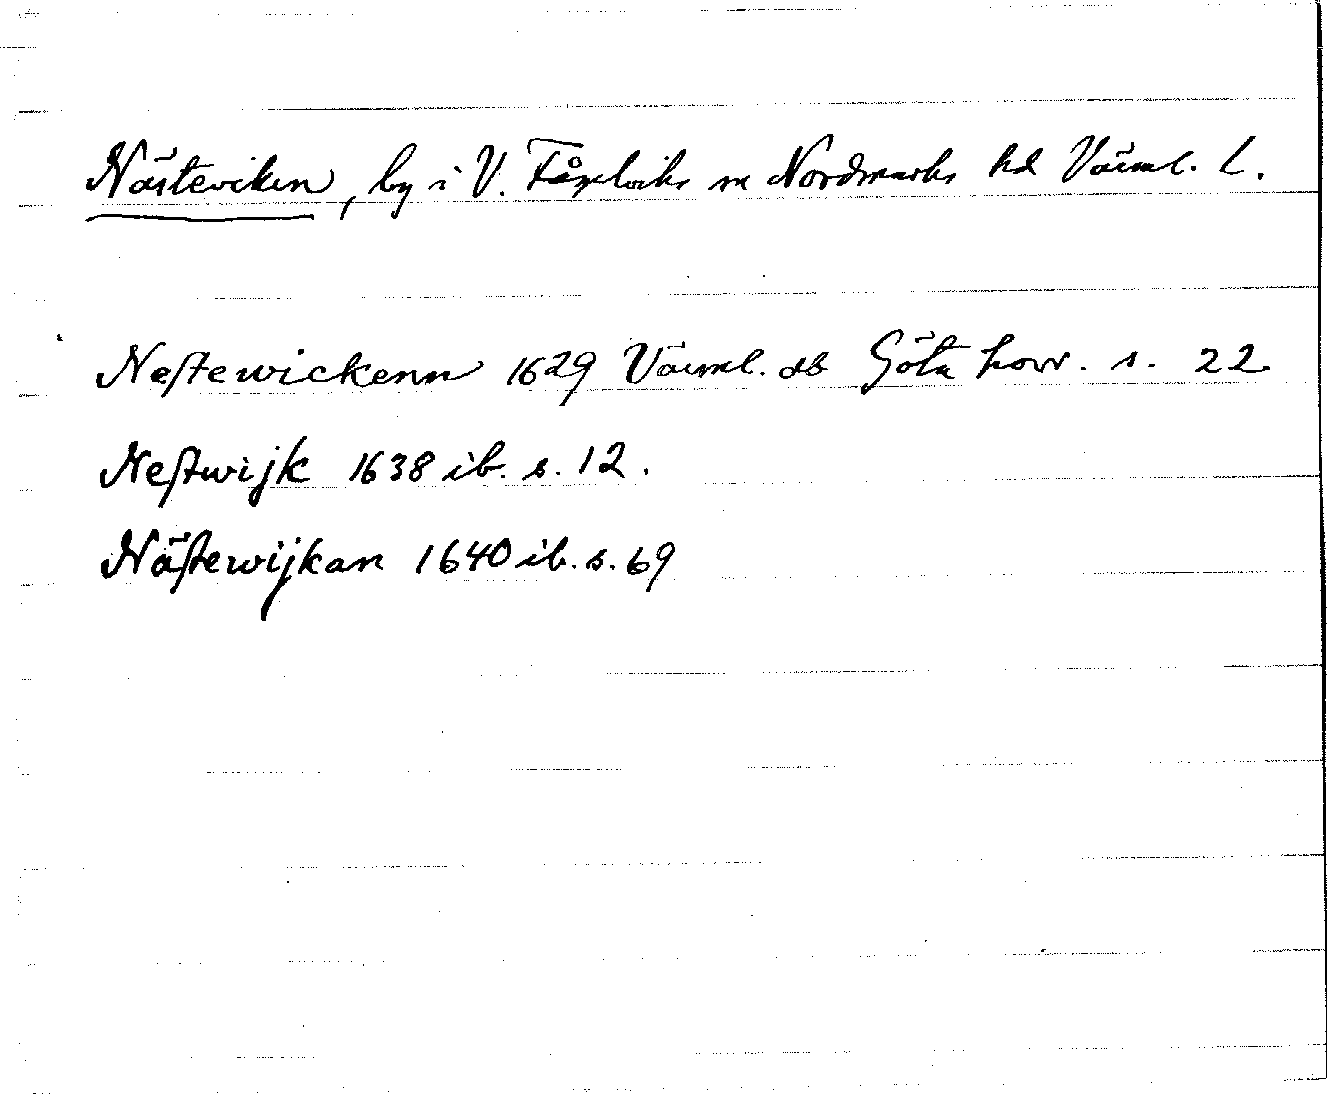 Nästeviken, by i V. Fågelviks sn Nordmarks hd Värml. l.
Nestewickenn 1629 Värml. db Göta hovr. s. 22
Nestwijk 1638 ib. s. 12.
Nästewijkan 1640 ib. s. 69